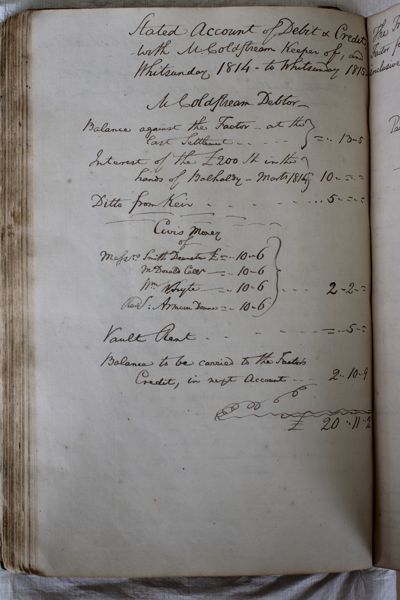 Stated Account of Debit & Credit
with M Coldstream Keeper of, and
Whitsunday 1814 - to Whitsunday 1815
M Coldstream Debtor
Balance against the Factor - at the
last Settlement - - - - - } = " 13 - 5
Interest of the £200 St in the
hands of Balhaldy - Marts 1814 } 10 - = - =
Ditto from Keir - - - - - - 5 - = - =
Civis Money
of
Messrs Smith £ = - 10 - 6
McDonald = - 10 - 6
Wm Whyte = - 10 - 6
= - 10 - 6 } - - - - 2 - 2 - =
Vault Rent - - - - - = - 5 - =
Balance to be carried to the Factors
Credit, in next Account - - - 2 - 10 - 9
£ 20 " 11 - 2
The
Factor for
inclusive